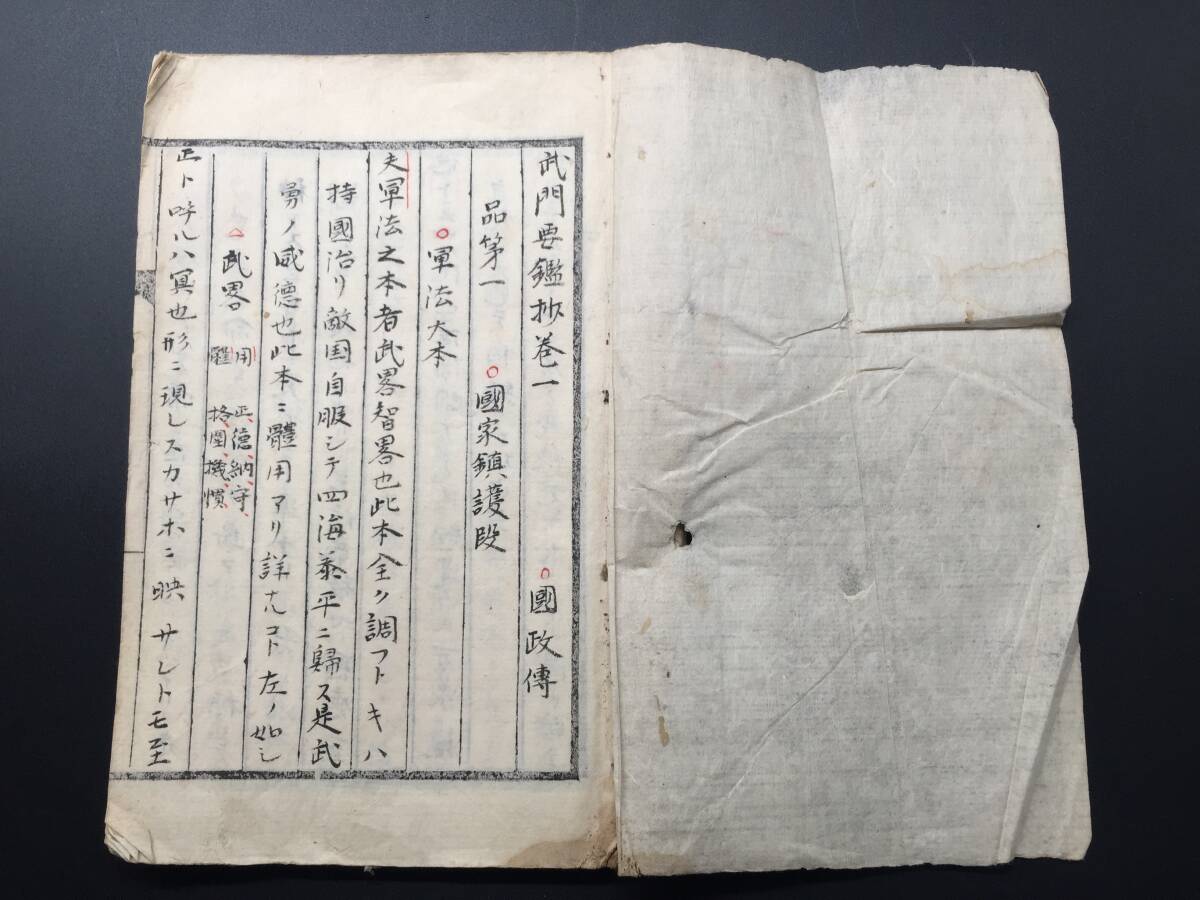 武門要鑑抄巻一 國政傳
品第一 國家鎮護段
軍法大本
夫軍法之本者武畧智畧也此本全ク調フトキハ
持國治リ敵国自服シテ四海泰平ニ歸ス是武
勇ノ威德也此本ニ體用アリ詳ナルコト左ノ如シ
武畧 用 正德納守
體 格圍機慣
正ト呼ルハ冥也形ニ現レスカサホニ映サレトモ至